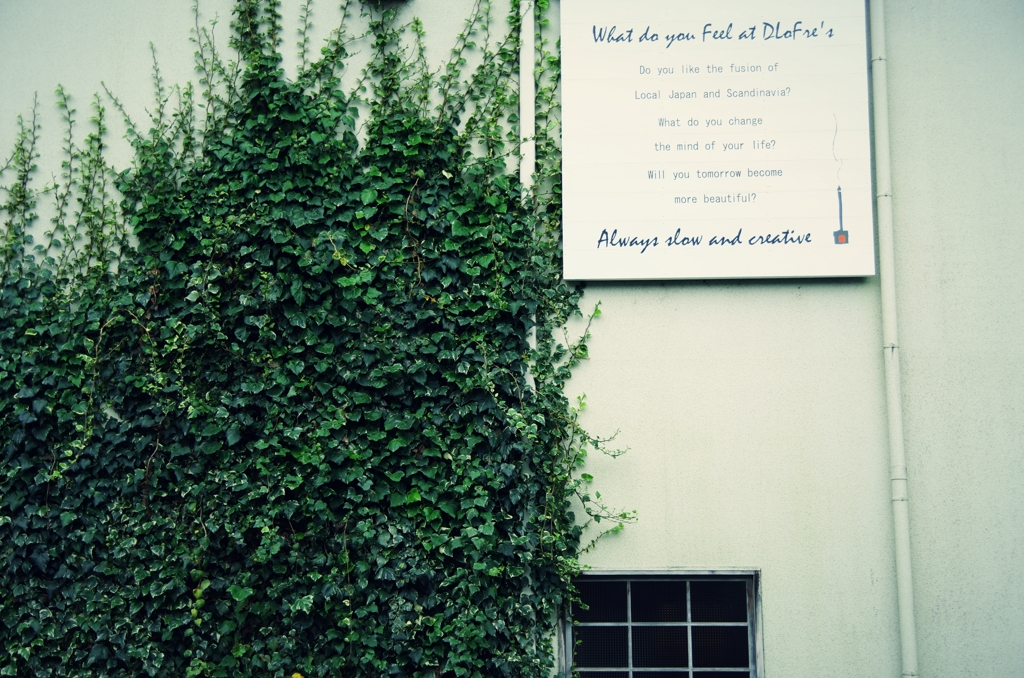 What do you Feel at DLoFre's
Do you like the fusion of
Local Japan and Scandinavia?
What do you change
the mind of your life?
Will you tomorrow become
more beautiful?
Always slow and creative